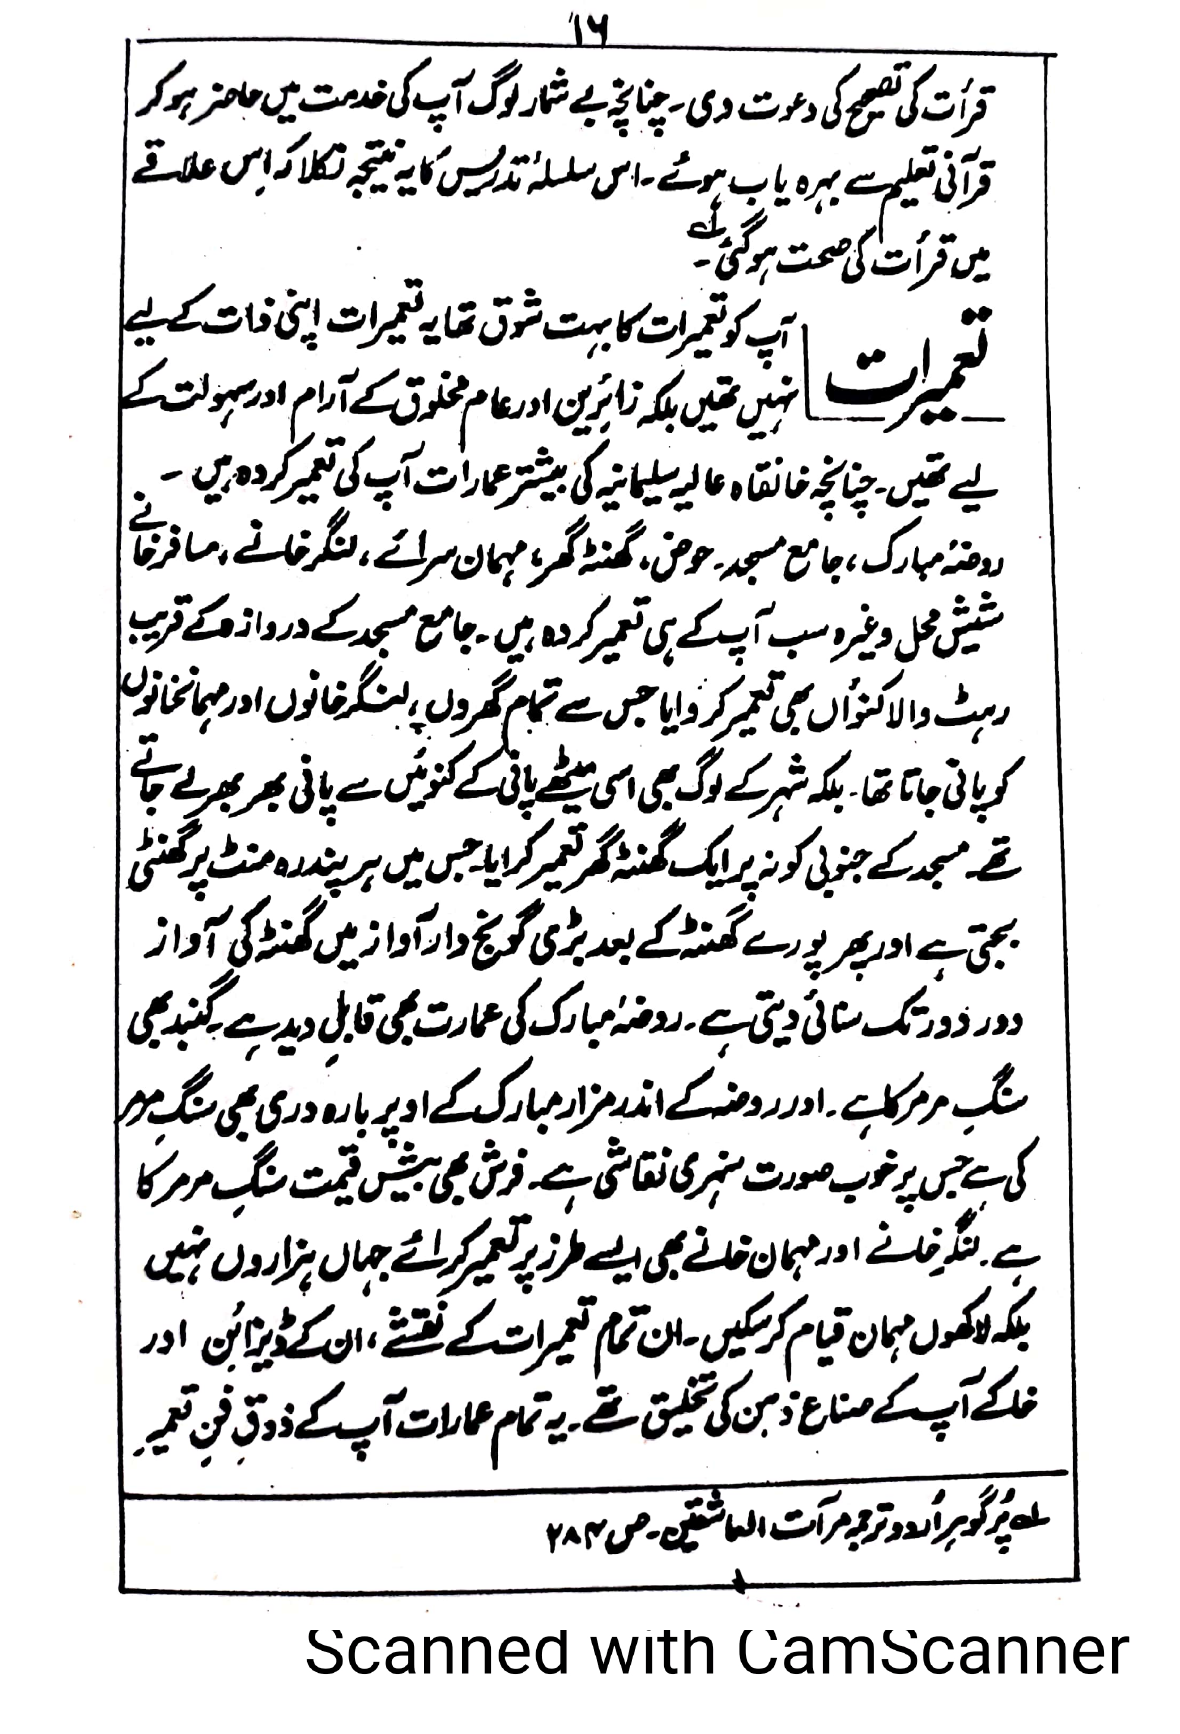 ۱۶
قرأت کی تصحیح کی دعوت دی۔ چنانچہ بے شمار لوگ آپ کی خدمت میں حاضر ہو کر
قرآنی تعلیم سے بہرہ یاب ہوئے۔ اس سلسلۂ تدریس کا یہ نتیجہ نکلا کہ اِس علاقے
میں قرأت کی صحت ہو گئی۔ ؎۱
تعمیرات
آپ کو تعمیرات کا بہت شوق تھا یہ تعمیرات اپنی ذات کے لیے
نہیں تھیں بلکہ زائرین اور عام مخلوق کے آرام اور سہولت کے
لیے تھیں۔ چنانچہ خانقاہ عالیہ سلیمانیہ کی بیشتر عمارات آپ کی تعمیر کردہ ہیں۔
روضۂ مبارک، جامع مسجد۔ حوض، گھنٹہ گھر، مہمان سرائے، لنگر خانے، مسافر خانے
شیش محل وغیرہ سب آپ کے ہی تعمیر کردہ ہیں۔ جامع مسجد کے دروازہ کے قریب
رہٹ والا کنوأں بھی تعمیر کروایا جس سے تمام گھروں، لنگر خانوں اور مہمانخانوں
کو پانی جاتا تھا۔ بلکہ شہر کے لوگ بھی اسی میٹھے پانی کے کنوئیں سے پانی بھر بھر لے جاتے
تھے۔ مسجد کے جنوبی کونہ پر ایک گھنٹہ گھر تعمیر کرایا۔ جس میں ہر پندرہ منٹ پر گھنٹی
بجتی ہے اور پھر پورے گھنٹہ کے بعد بڑی گونج دار آواز میں گھنٹہ کی آواز
دور دور تک سنائی دیتی ہے۔ روضۂ مبارک کی عمارت بھی قابلِ دید ہے۔ گنبد بھی
سنگِ مرمر کا ہے۔ اور روضہ کے اندر مزار مبارک کے اوپر بارہ دری بھی سنگِ مرمر
کی ہے جس پر خوب صورت سنہری نقاشی ہے۔ فرش بھی بیش قیمت سنگِ مرمر کا
ہے۔ لنگر خانے اور مہمان خانے بھی ایسے طرز پر تعمیر کرائے جہاں ہزاروں نہیں
بلکہ لاکھوں مہمان قیام کر سکیں۔ ان تمام تعمیرات کے نقشے، ان کے ڈیزائن اور
خاکے آپ کے صناع ذہن کی تخلیق تھے۔ یہ تمام عمارات آپ کے ذوقِ فنِ تعمیرِ
؎۱ پُر گوہر اُردو ترجمہ مرآت العاشقین۔ ص ۲۸۴
Scanned with CamScanner